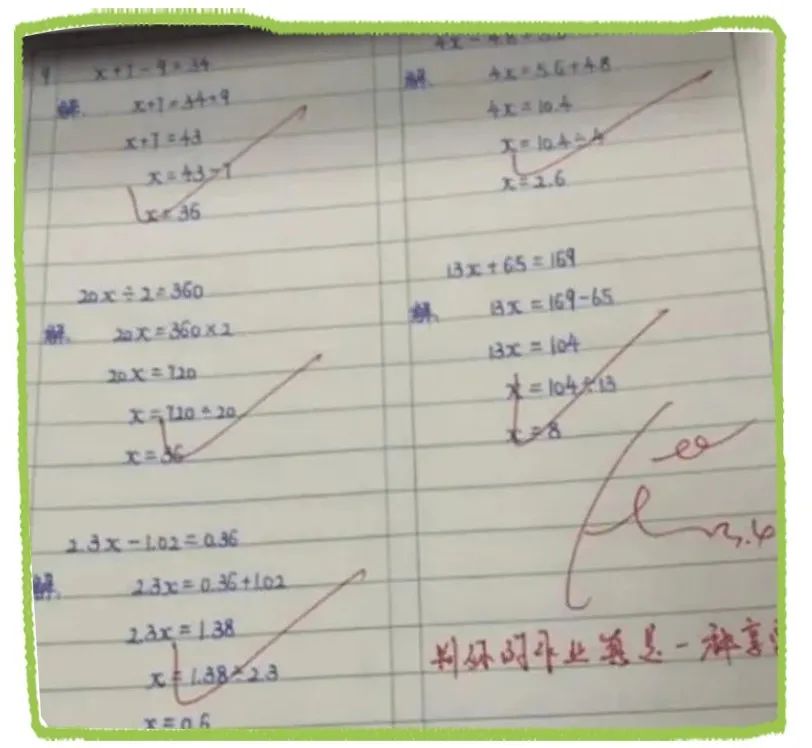 x+7-9=34
解: x+7=34+9
x+7=43
x=43-7
x=36
20x÷2=360
解: 20x=360×2
20x=720
x=720÷20
x=36
2.3x-1.02=0.36
解: 2.3x=0.36+1.02
2.3x=1.38
x=1.38÷2.3
x=0.6
解: 4x=5.6+4.8
4x=10.4
x=10.4÷4
x=2.6
13x+65=169
解: 13x=169-65
13x=104
x=104÷13
x=8
判你的作业真是一种享